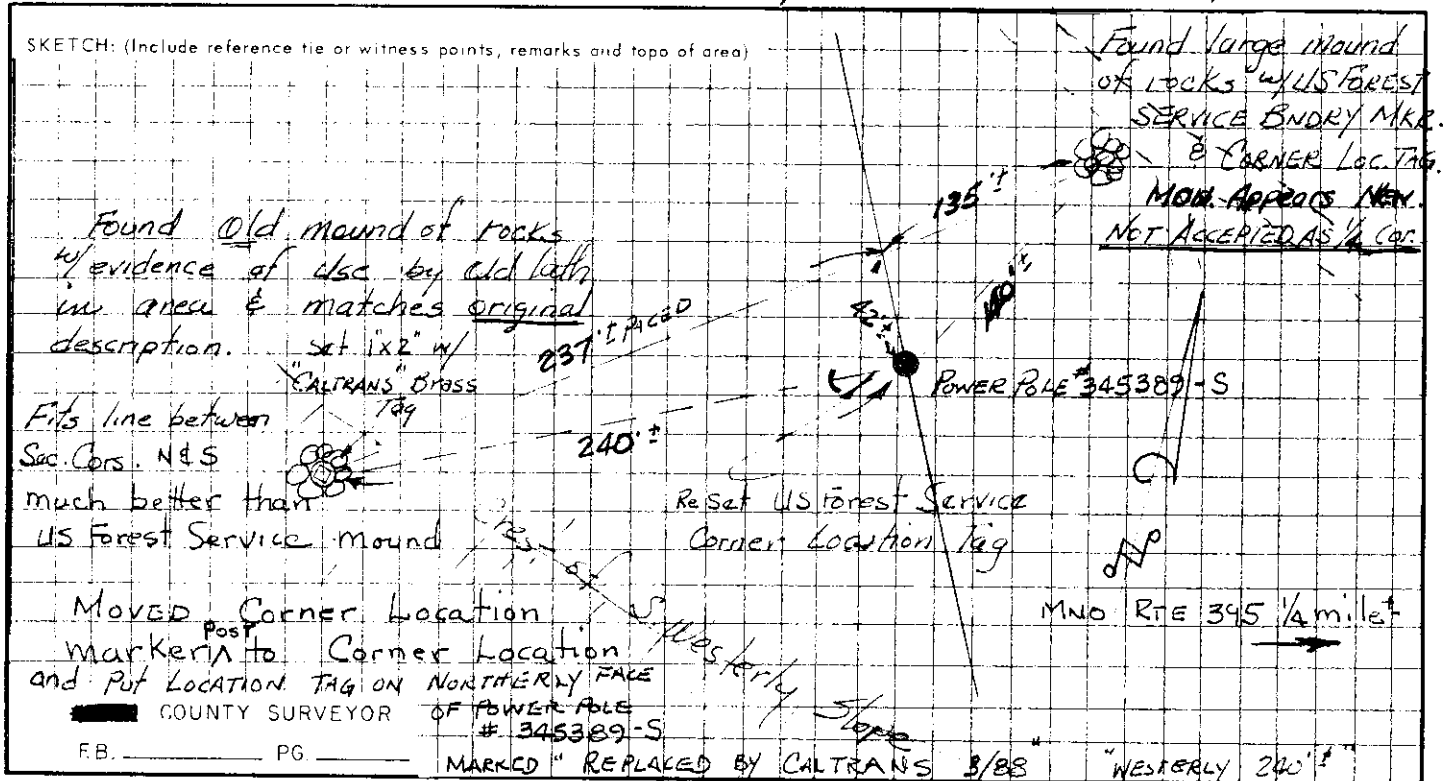 SKETCH: (Include reference tie or witness points, remarks and topo of area)
Found large mound
of rocks w/ US FOREST
SERVICE BNDRY MKR.
& CORNER LOC. TAG.
MON. Appears NEW.
NOT ACCEPTED AS 1/4 COR.
135'±
Found Old mound of rocks
w/ evidence of use by old lath
in area & matches original
description. Set 1"x2" w/
"CALTRANS" Brass
Tag
237'± PACED
42'±
POWER POLE #345389-S
Fits line between
Sec. Cors. N&S
much better than
US Forest Service mound
240'±
Re Set US Forest Service
Corner Location Tag
Crest of
S'Westerly Slope
MNO RTE 395 1/4 mile±
MOVED Corner Location
marker POST to Corner Location
and Put LOCATION TAG ON NORTHERLY FACE
OF POWER POLE
# 345389-S
COUNTY SURVEYOR
F.B. PG.
MARKED "REPLACED BY CALTRANS 3/88" "WESTERLY 240'±"